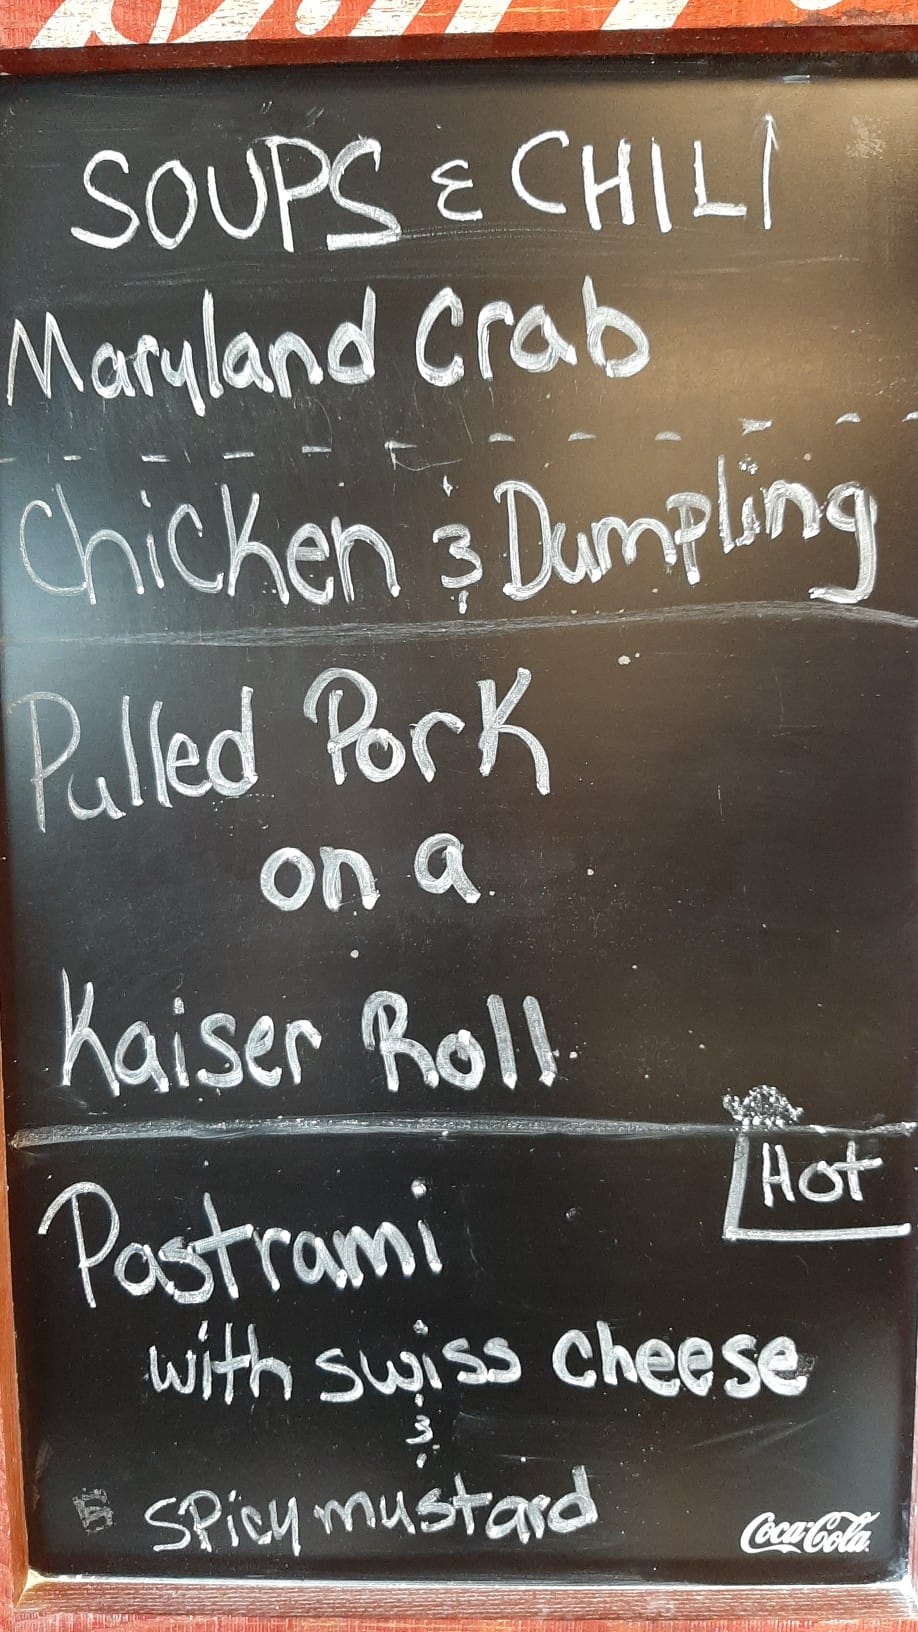 SOUPS & CHILI
Maryland Crab
Chicken & Dumpling
Pulled Pork
on a
Kaiser Roll
Hot
Pastrami
with swiss cheese
&
spicy mustard
Coca-Cola